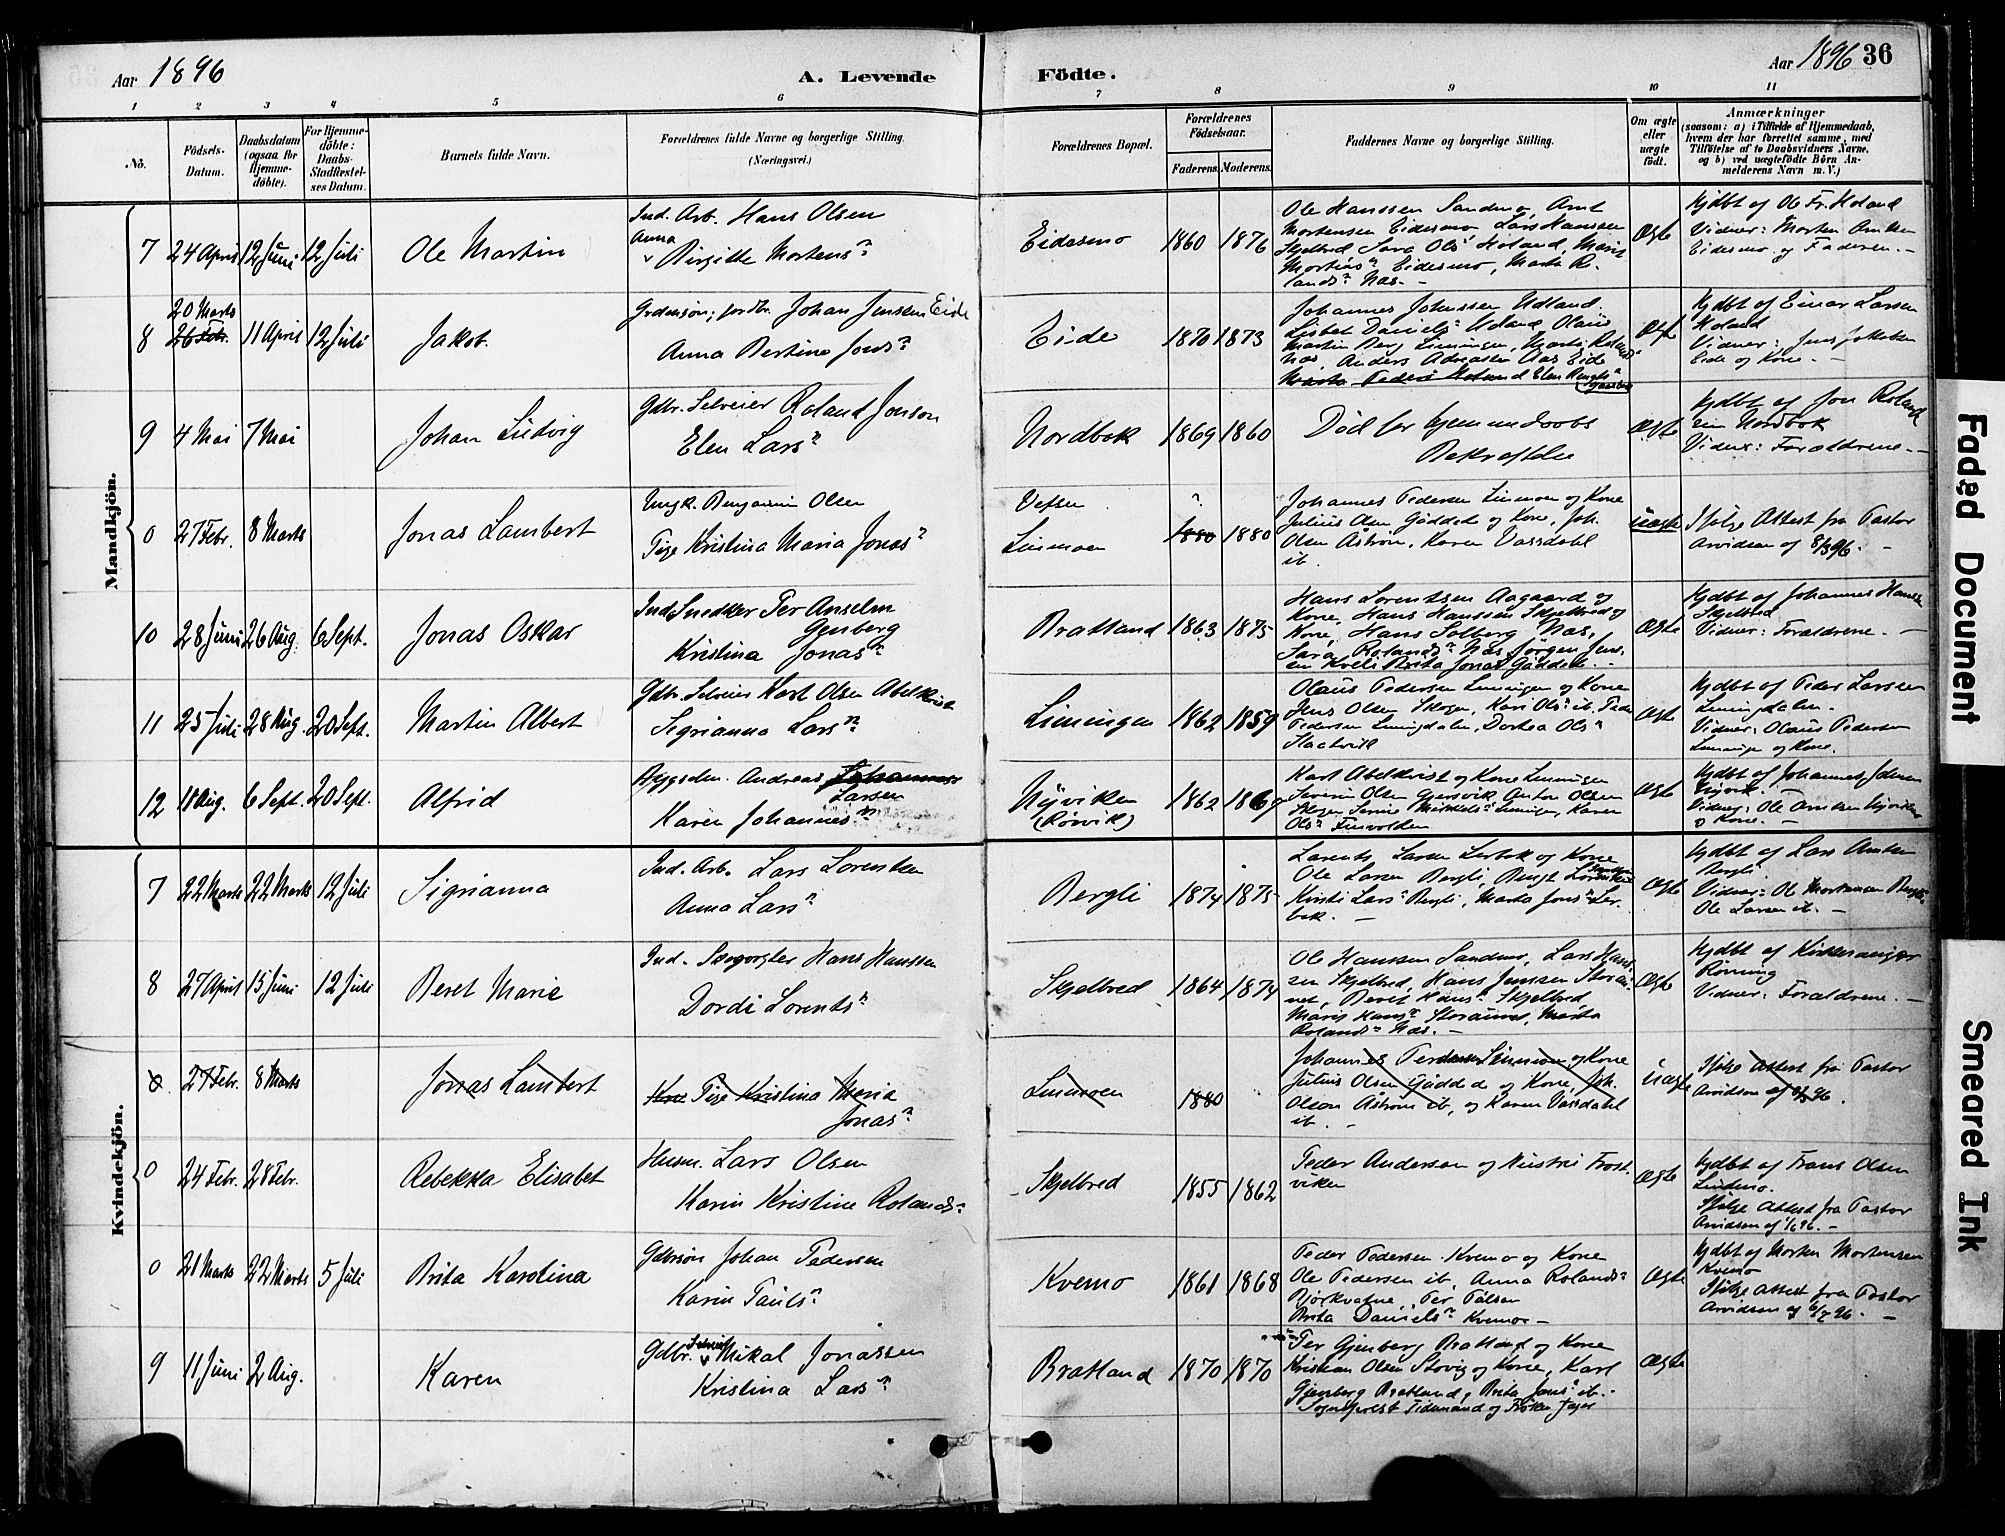 Aar 1896
A. Levende
Födte.
Aar 1896 36
1 2 3 4 5 6 7 8 9 10 11
No.
Födsels-Datum.
Daabsdatum (ogsaa for Hjemmedöbte).
For Hjemmedöbte: Daabs-Stadfæstelses Datum.
Barnets fulde Navn.
Forældrenes fulde Navne og borgerlige Stilling.
(Næringsvei.)
Forældrenes Bopæl.
Forældrenes Födselsaar.
Faderens. Moderens.
Faddernes Navne og borgerlige Stilling.
Om ægte eller uægte födt.
Anmærkninger
(saasom: a) i Tilfælde af Hjemmedaab, hvem der har forrettet samme, med Tilföielse af to Daabsvidners Navne, og b) ved uægtefödte Börn Anmelderens Navn m. V.)
Mandkjön.
7 24 April 12 Juni 12 Juli Ole Martin
Ind. Arb. Hans Olsen
Anna
Birgitte Mortens
Eidesmo 1860 1876
Ole Hanssen Sandmo, Arnt
Mortensen Eidesmo, Lars Hanssen
Skjelbred, Sara Ols Holand, Marit
Eidesmo, Marta R.
lands Næs. -
Ægte
Hjdbt af Ole Fr. Holand
Vidner: Morten
Eidesmo og Faderen. -
20 Marts
8 26 Febr. 11 April 12 Juli Jakob.
Johan Jenssen Eide
Anna Bertine Jons
Eide 1870 1873
Johannes
Lisbet Daniels Holand, Olaus
Martin Berg Limingen, Marta Rolands
Næs, Anders Adriasen Aas Eide
Ægte
Hjdbt af Einar Larsen
Holand
Vidner: Jens Jakobsen
Eide og Kone. -
9 4 Mai 7 Mai Johan Ludvig
Gdbr. Selveier Roland Jonson
Elen Lars
Nordbok 1869 1860
Död för hjemmedaabs
Bekræftelse
Ægte
Hjdbt af Jon Roland
sen Nordbok
Vidner: Forældrene. -
0 27 Febr. 8 Marts Jonas Lambert
Ungk. Benjamin Olsen
Pige Kristina Maria Jonas
Vefsen
Linmoen
? 1880 1880
Johannes Pedersen Linmoen og Kone
Julius Olsen Gäddede og Kone, Joh.
Olsen Aström, Karen Vassdahl
ib.
uægte
Ifølge Attest fra Pastor
Arvidsen af 8/3 96. -
10 28 Juni 26 Aug. 6 Sept. Jonas Oskar
Ind. Snedker Per Anselm
Gjenberg
Kristina Jonas
Bratland 1863 1875
Hans Lorentzen Aagaard og
Kone, Hans Hanssen Skjelbred og
Kone, Hans Solberg Næs,
Sara Rolands Næs, Jørgen Jens
sen Kvelie Brita Jonas Gäddede. -
Ægte
Hjdbt af Johannes Hanssen
Skjelbred
Vidner: Forældrene. -
11 25 Juli 28 Aug. 20 Sept. Martin Albert
Gdbr. Selveier Karl Olsen Abelkvist
Sigrianna Lars
Limingen 1862 1859
Olaus Pedersen Limingen og Kone
Jens Olsen Skogen, Kari Ols ib, Peder
Pedersen Limingdalen, Dortea Ols
Ægte
Hjdbt af Peder Larssen
Limingdalen.
Vidner: Olaus Pedersen
Limingen og Kone.
12 11 Aug. 6 Sept. 20 Sept. Alfrid
Bygselm. Andreas Johannes
Larsen
Karen Johannes
Nyviken
(Rörvik)
1862 1869
Karl Abelkvist og Kone Limingen
Severin Olsen Gjersvik, Anton Olsen
Skogen, Limingen, Karen
Ols Finvolden
Ægte
Hjdbt af Johannes
Vidner: Ole
og Kone. -
Kvindekjön.
7 22 Marts 22 Marts 12 Juli Sigrianna
Ind. Arb. Lars Lorentsen
Anna Lars
Bergli 1874 1875
Lorents Larsen Lerbek og Kone
Ole Larsen Bergli, Bengt Lorentsen
Kirsti Lars Bergli, Marta Jons Ler-
bek. -
Ægte
Hjdbt af Lars
Bergli
Vidner: Ole Mortensen Bergli.
Ole Larsen ib. -
8 27 April 15 Juni 12 Juli Beret Marie
Ind. Skogvogter Hans Hanssen
Dordi Lorents
Skjelbred 1864 1874
Ole Hanssen Sandmo, Lars Hans-
sen Skjelbred, Hans Jenssen
Beret Hans Skjelbred
Marta
Rolands Næs. -
Ægte
Hjdbt af Kirkesanger
Rönning
Vidner: Forældrene. -
8 27 Febr. 8 Marts Jonas Lambert
Pige Kristina Maria
Jonas
Linmoen 1880
Johannes Pedersen Linmoen og Kone
Julius Olsen Gäddede og Kone, Joh.
Olsen Aström ib, og Karen Vassdahl
ib. -
uægte
Ifølge Attest fra Pastor
Arvidsen af 8/3 96.
0 24 Febr. 28 Febr. Rebekka Elisabet
Husm. Lars Olsen
Karin Kristine Rolands
Skjelbred 1855 1862
Peder Anderson og Hustru Frost-
viken
Ægte
Hjdbt af Frans Olsen
Lindmo.
Ifølge Attest fra Pastor
Arvidsen af 1/6 96. -
0 21 Marts 22 Marts 5 Juli Brita Karolina
Gdbrsøn Johan Pedersen
Karin Pauls
Kvemo 1861 1868
Peder Pedersen Kvemo og Kone
Ole Pedersen ib, Anna Rolands
Bjørkvatne, Per Pålsen
Brita Daniels Kvemo -
Ægte
Hjdbt af Morten Mortensen
Kvemo
Ifølge Attest fra Pastor
Arvidsen af 6/7 96. -
9 11 Juni 2 Aug. Karen
Gdbr. Selveier Mikal Jonassen
Kristina Lars
Bratland 1870 1870
Per Gjenberg Bratland og Kone
Kristian Olsen Stovig og Kone, Karl
Gjenberg Bratland, Brita Jons ib. -
Sogneprest Tidemand og Frøken Jager
Ægte
Faded Document
Smeared Ink